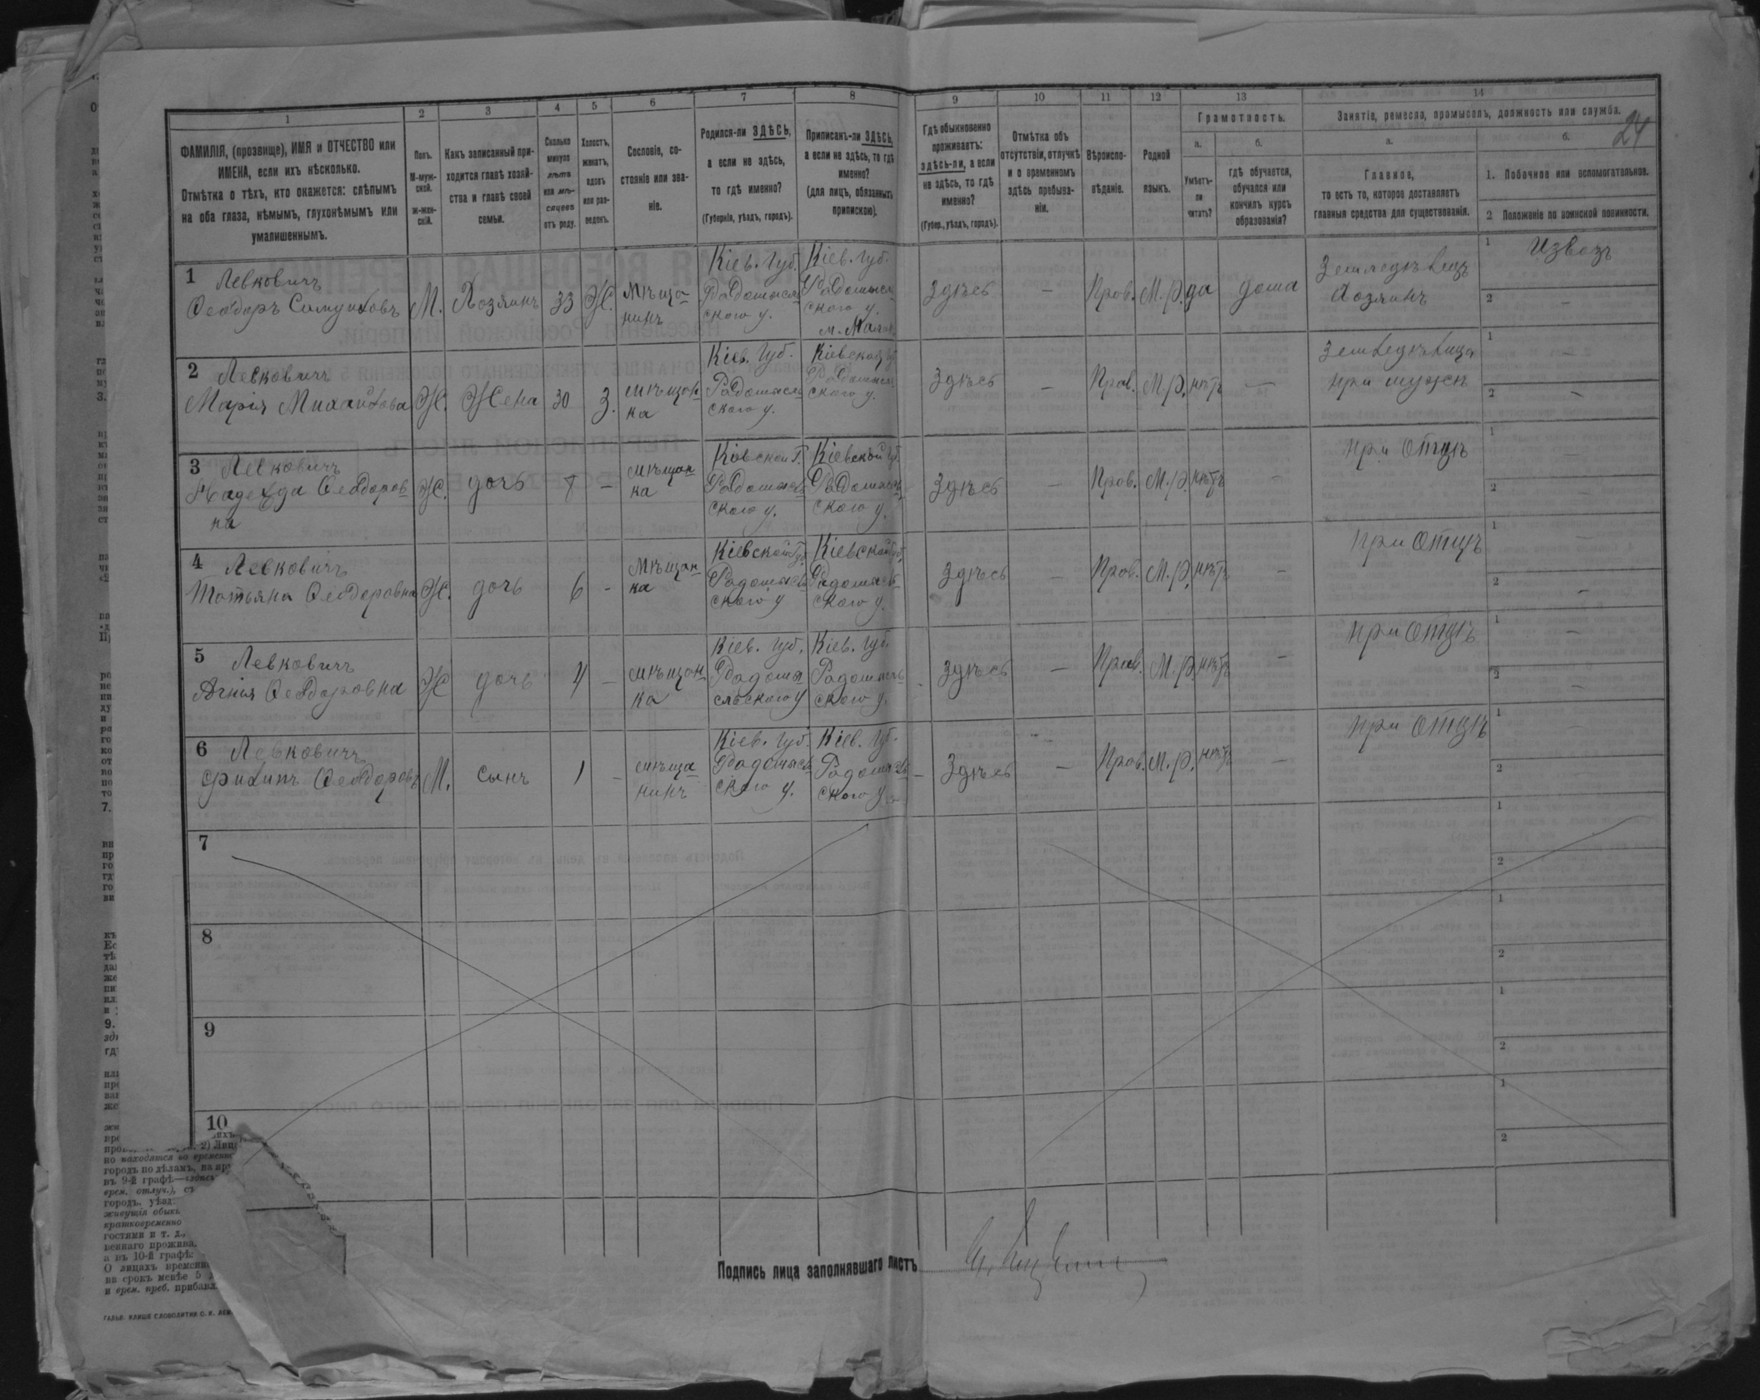 1
2
3
4
5
6
7
8
9
10
11
12
13
14
24
ФАМИЛІЯ, (прозвище), ИМЯ и ОТЧЕСТВО или
ИМЕНА, если ихъ нѣсколько.
Отмѣтка о тѣхъ, кто окажется: слѣпымъ
на оба глаза, нѣмымъ, глухонѣмымъ или
умалишеннымъ.
Полъ.
М-муж-
ской.
Ж-жен-
скій.
Какъ записанный при-
ходится главѣ хозяй-
ства и главѣ своей
семьи.
Сколько
минуло
лѣтъ
или мѣ-
сяцевъ
отъ роду.
Холостъ,
женатъ,
вдовъ
или раз-
веденъ.
Сословіе, со-
стояніе или зва-
ніе.
Родился-ли ЗДѢСЬ,
а если не здѣсь,
то гдѣ именно?
(Губернія, уѣздъ, городъ).
Приписанъ-ли ЗДѢСЬ,
а если не здѣсь, то гдѣ
именно?
(для лицъ, обязанныхъ
припискою).
Гдѣ обыкновенно
проживаетъ:
здѣсь-ли, а если
не здѣсь, то гдѣ
именно?
(Губер., уѣздъ, городъ).
Отмѣтка объ
отсутствіи, отлучкѣ
и о временномъ
здѣсь пребыва-
ніи.
Вѣроиспо-
вѣданіе.
Родной
языкъ.
Грамотность.
а.
Умѣетъ-
ли
читать?
б.
гдѣ обучается,
обучался или
кончилъ курсъ
образованія?
Занятіе, ремесло, промыселъ, должность или служба.
а.
Главное,
то есть то, которое доставляетъ
главныя средства для существованія.
б.
1. Побочное или вспомогательное.
2 Положеніе по воинской повинности.
1 Левковичъ
Феодоръ Самуиловъ М. Хозяинъ 33 Ж. мѣща-
нинъ
Кіев. Губ.
Радомысль-
ского у.
Кіев. Губ.
Радомысль-
ского у.
здѣсь — Прав. М.Р. да дома
Земледѣлецъ
Хозяинъ
1 Извозъ
2 —
2 Левковичъ
Марія Михайлова Ж. Жена 30 З. мѣщан-
ка
Кіев. Губ.
Радомысль-
ского у.
Кіевской губ
Радомысль-
ского у.
здѣсь — Прав. М.Р. нѣтъ —
Земледѣлица
при мужѣ
1 —
2 —
3 Левковичъ
Надежда Феодоров-
на
Ж. дочь — мѣщан-
ка
Радомысль-
ского у.
Кіевской Губ.
Радомысль-
ского у.
здѣсь — Прав. М.Р. нѣтъ —
при Отцѣ
1 —
2 —
4 Левковичъ
Татьяна Феодоровна Ж. дочь 6 — мѣщан-
ка
Кіевской Губ.
Радомысль-
ского у
Кіевской Губ.
Радомысль-
ского у.
здѣсь — Прав. М.Р. нѣтъ —
при Отцѣ
1 —
2 —
5 Левковичъ
Агнія Феодоровна Ж дочь 4 — мѣщан-
ка
Кіев. Губ.
Радомы-
сльского у
Кіев. Губ.
Радомысль-
ского у.
здѣсь — Прав. М.Р. нѣтъ —
при Отцѣ
1 —
2 —
6 Левковичъ
Филипъ Феодоровъ М. сынъ 1 — мѣща-
нинъ
Кіев. Губ.
Радомысль-
ского у.
Кіев. Губ.
Радомысль-
ского у.
здѣсь — Прав. М.Р. нѣтъ —
при Отцѣ
1 —
2
7
1
2
8
1
2
9
1
2
10
1
2
Подпись лица заполнявшаго листъ